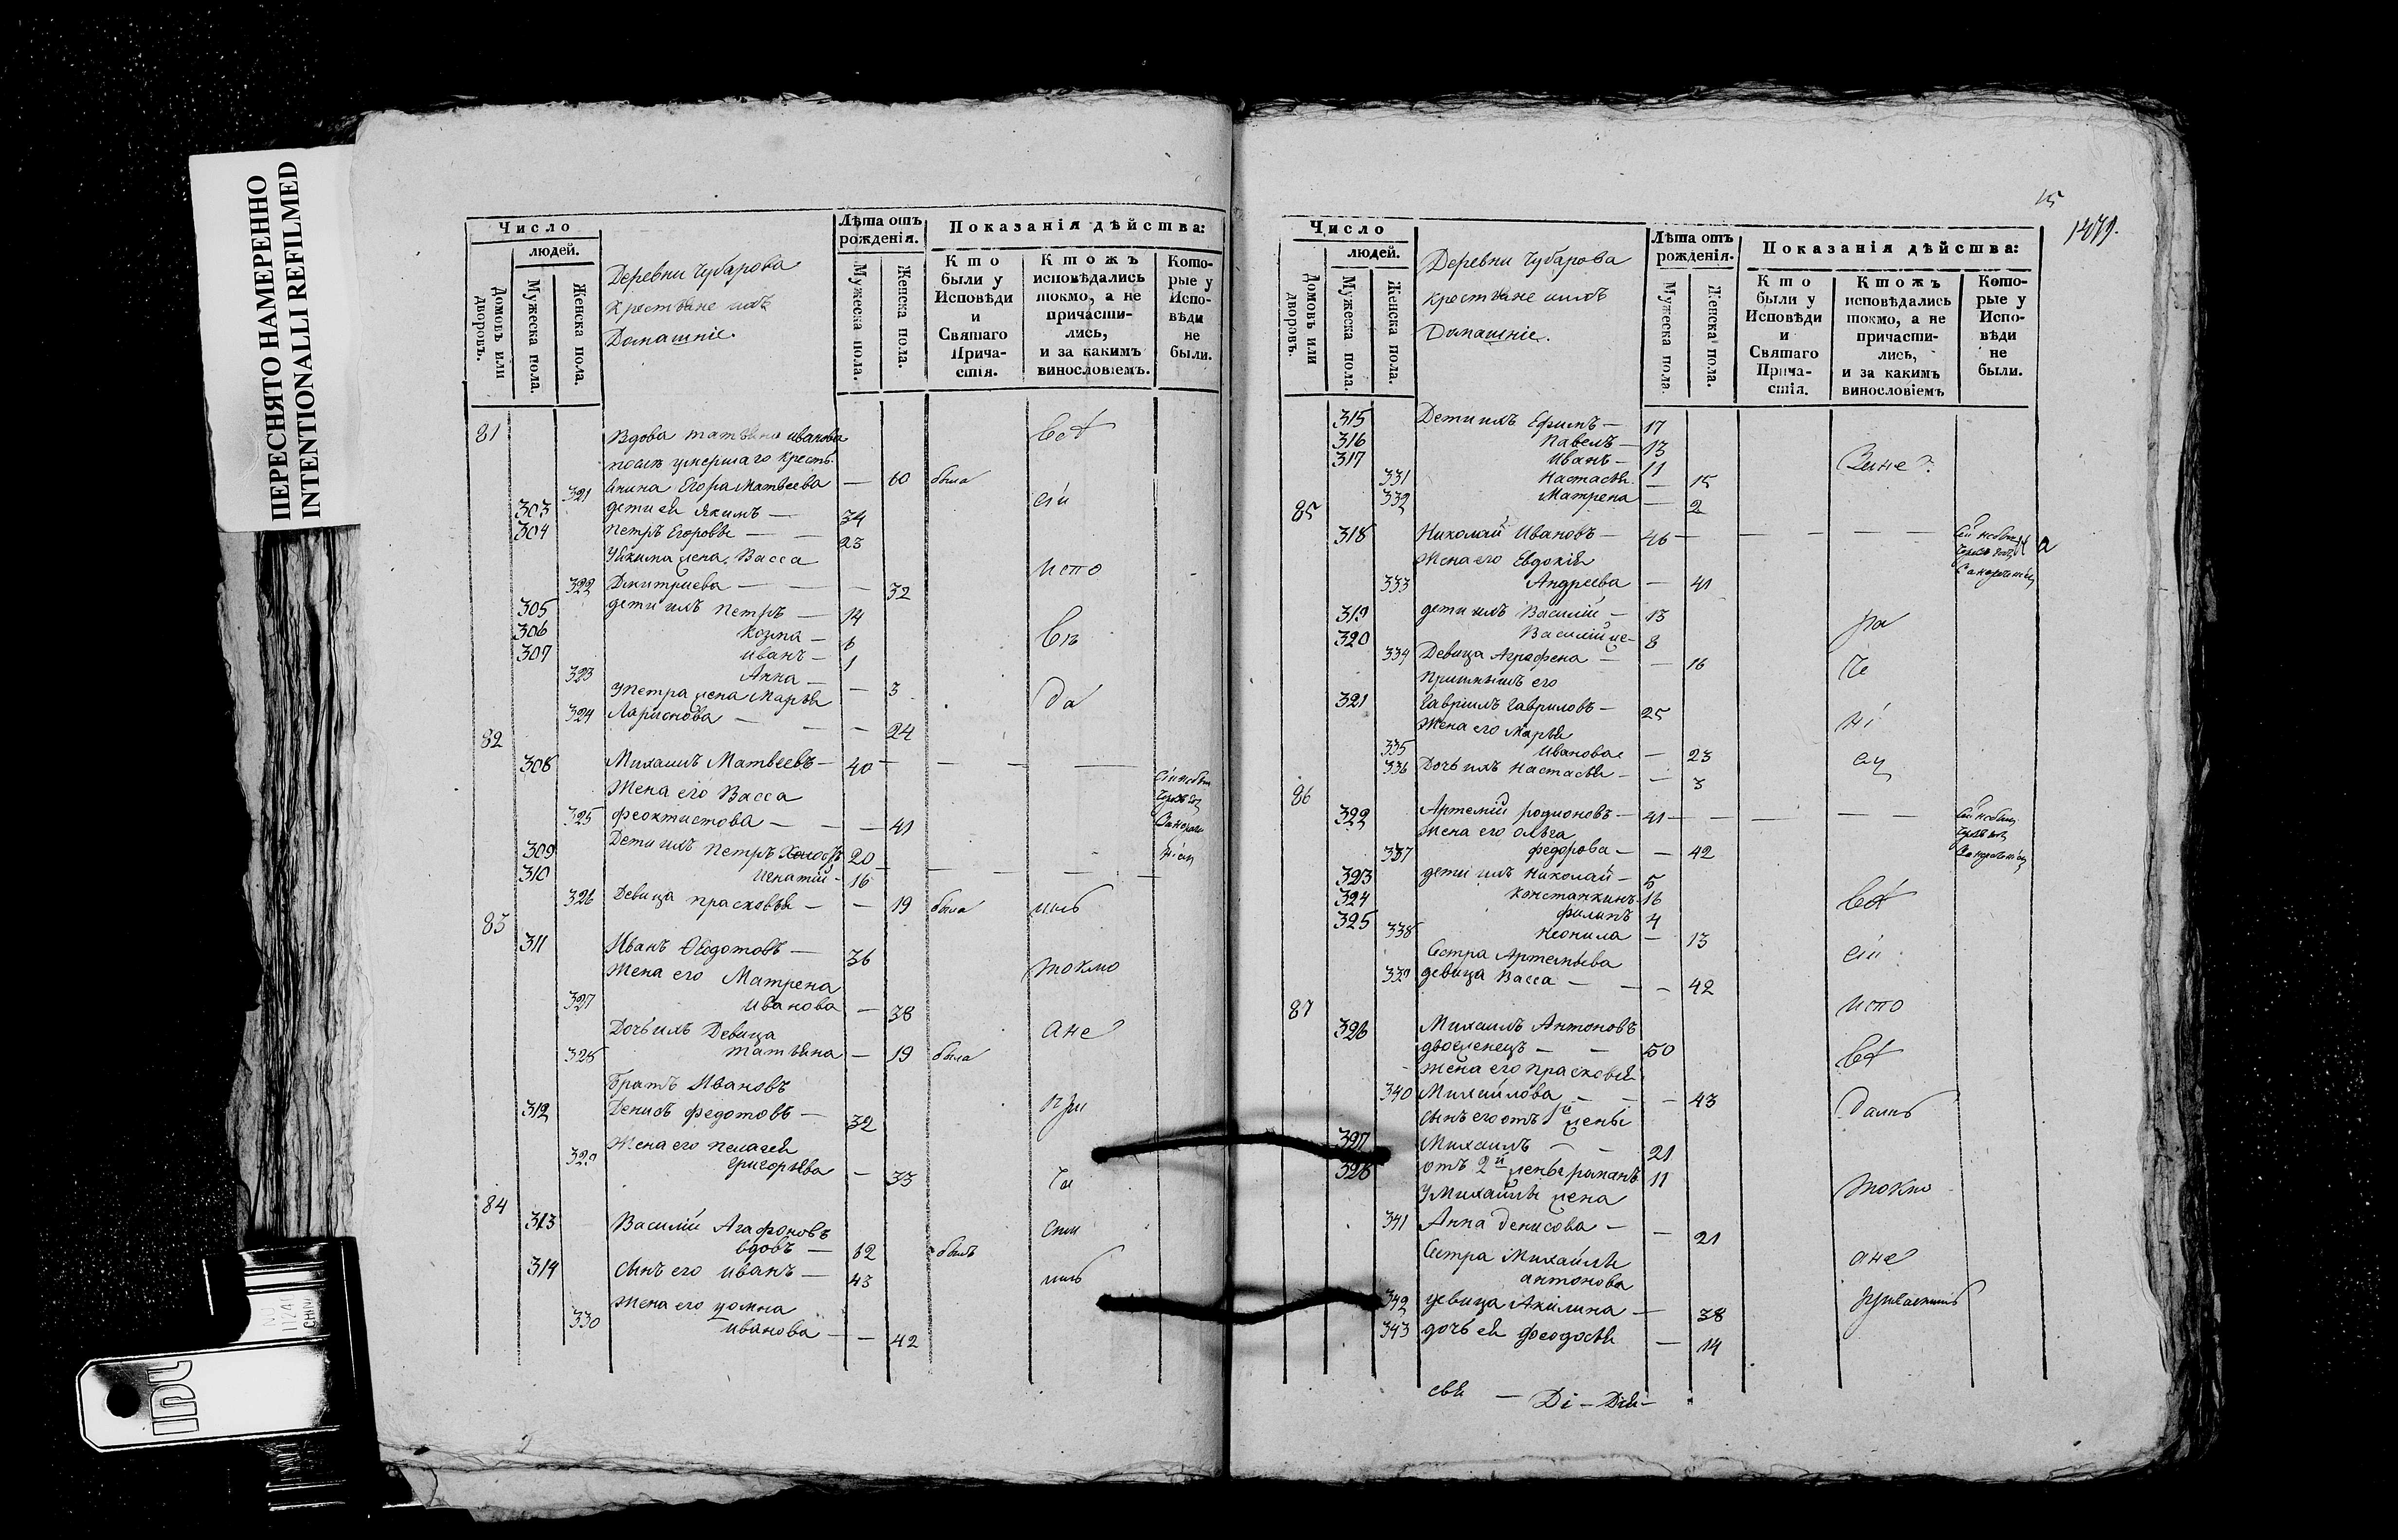 ПЕРЕСНЯТО НАМЕРЕННО
INTENTIONALLI REFILMED
Число
людей.
Домовъ или дворовъ.
Мужеска пола.
Женска пола.
Деревни Чубарова
Крестьяне ихъ
Домашніе.
Лѣта отъ рожденія.
Мужеска пола.
Женска пола.
Показанія дѣйства:
Кто были у Исповѣди и Святаго Прича-стія.
Ктожъ исповѣдались токмо, а не причасти-лись, и за какимъ винословіемъ.
Кото-рые у Испо-вѣди не были.
81 Вдова татьяна иванова
послѣ умершаго кресть-
321 янина Егора Матвеева — 60 была
303 дети ей Якимъ — 34
304 Петръ Егоровы — 23
У Якима жена Васса
322 Дмитриева — 32
305 дети ихъ Петръ — 14
306 Козма — 6
307 Иванъ — 1
323 Анна — 3
У петра жена Марья
324 Ларионова — 24
82
308 Михаилъ Матвеевъ — 40
Жена его Васса
325 феоктистова — 41
309 Дети ихъ Петръ холостъ 20
310 Игнатий — 16
326 Девица прасковья — 19 была
83
311 Иванъ Ѳеодотовъ — 36
Жена его Матрена
327 Иванова — 38
Дочь ихъ Девица
328 татьяна — 19 была
братъ Ивановъ
312 Денисъ федотовъ — 32
Жена его пелагея
329 григорьева — 33
84
313 Василій Агафоновъ
вдовъ — 62 былъ
314 Сынъ его иванъ — 43
Жена его домна
330 иванова — 42
всѣ
сіи
испо
вѣ
да
лись
токмо
а не
при
ча
сти
лись
15
1479.
Число
людей.
Домовъ или дворовъ.
Мужеска пола.
Женска пола.
Деревни Чубарова
крестьяне ихъ
Домашніе.
Лѣта отъ рожденія.
Мужеска пола.
Женска пола.
Показанія дѣйства:
Кто были у Исповѣди и Святаго Прича-стія.
Ктожъ исповѣдались токмо, а не причасти-лись, и за какимъ винословіемъ
Кото-рые у Испо-вѣди не были.
315 Дети ихъ Ефимъ — 17
316 Павелъ — 13
317 Иванъ — 11
331 Настасья — 15
332 Матрена — 2
85
318 Николай Ивановъ — 46
Жена его Евдокія
333 Андреева — 41
319 дети ихъ Василій — 13
320 Василій же — 8
334 Девица Аграфена — 16
его
321 Гавріилъ Гавриловъ — 25
Жена его Марья
335 Иванова — 23
336 Дочь ихъ Настасья — 3
86
322 Артемій родионовъ — 41
Жена его ольга
337 федорова — 42
323 дети ихъ Николай — 5
324 Константинъ 16
325 филипъ 4
338 Неонила — 13
Сестра Артемьева
339 девица Васса — 42
87
326 Михаилъ Антоновъ
двоеженецъ — 50
Жена его прасковья
340 Михайлова — 43
Сынъ его отъ 1й жены
327 Михаилъ — 21
328 отъ 2й жены романъ 11
У Михайлы жена
341 Анна денисова — 21
Сестра Михайлы
антонова
342 девица Акилина — 38
343 дочь ей феодосья — 14
всѣ
сіи
испо
вѣ
дались
токмо
а не
свя — Ді — Дія —